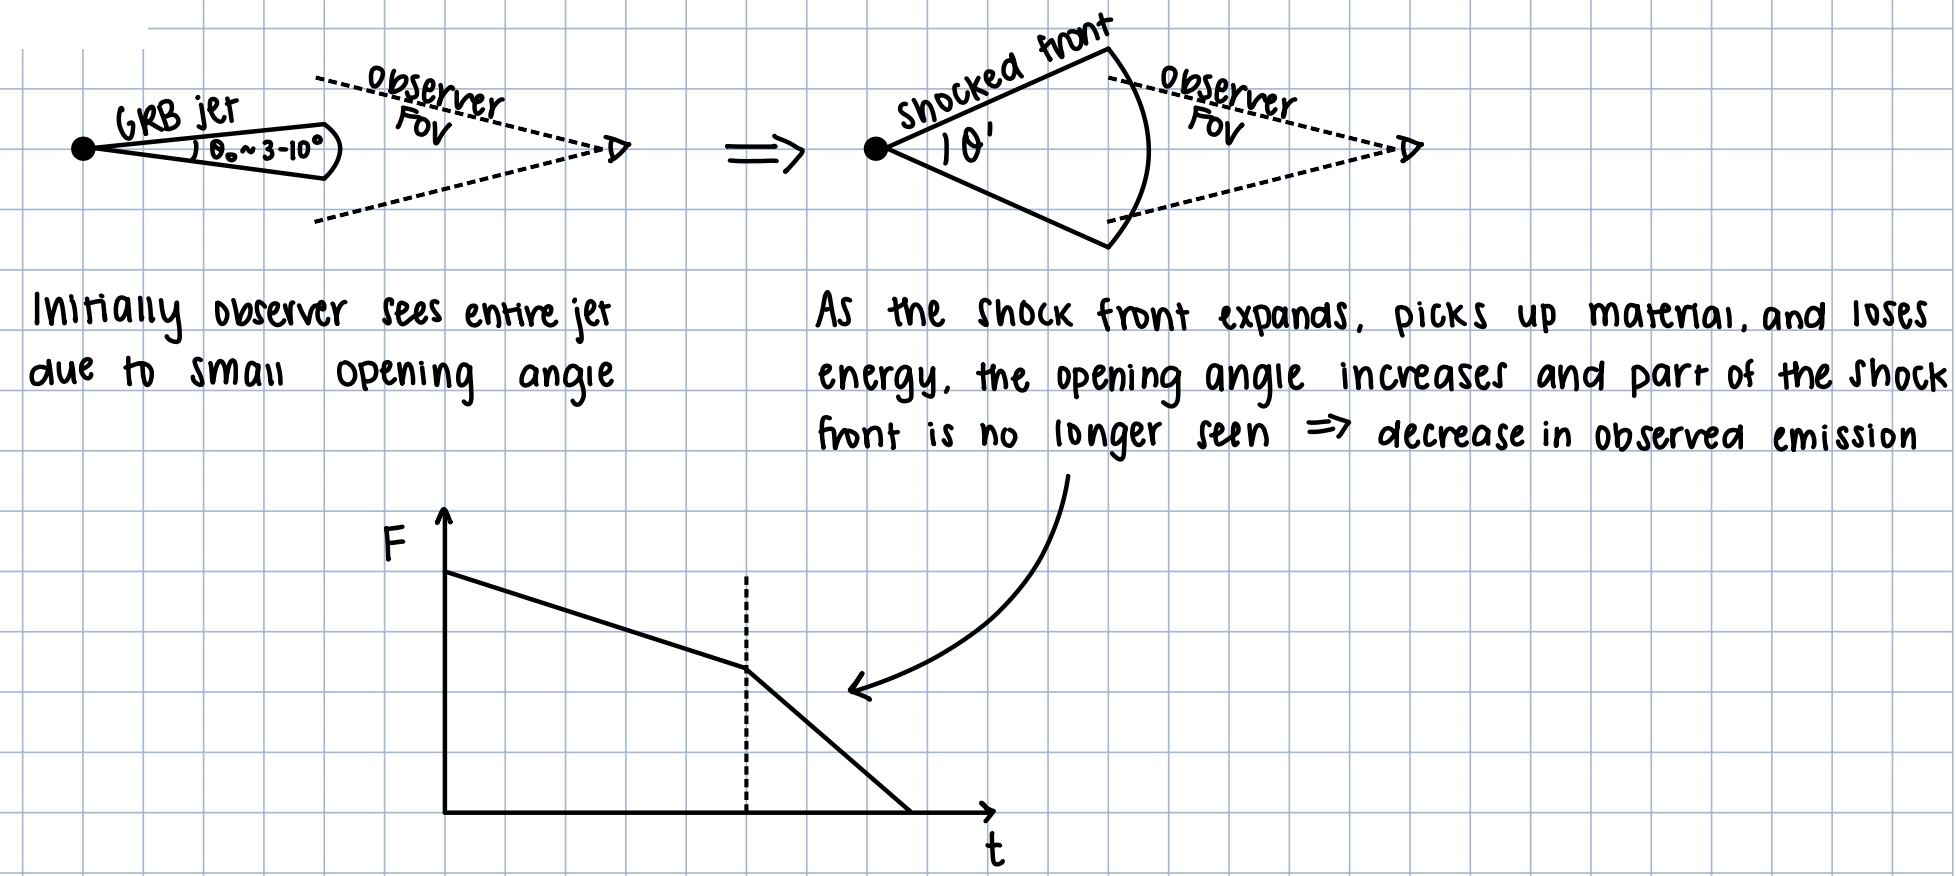 GRB jet
θ₀ ~ 3-10°
observer
FOV
⇒
shocked front
θ'
observer
FOV
Initially observer sees entire jet
due to small opening angle
As the shock front expands, picks up material, and loses
energy, the opening angle increases and part of the shock
front is no longer seen ⇒ decrease in observed emission
F
t